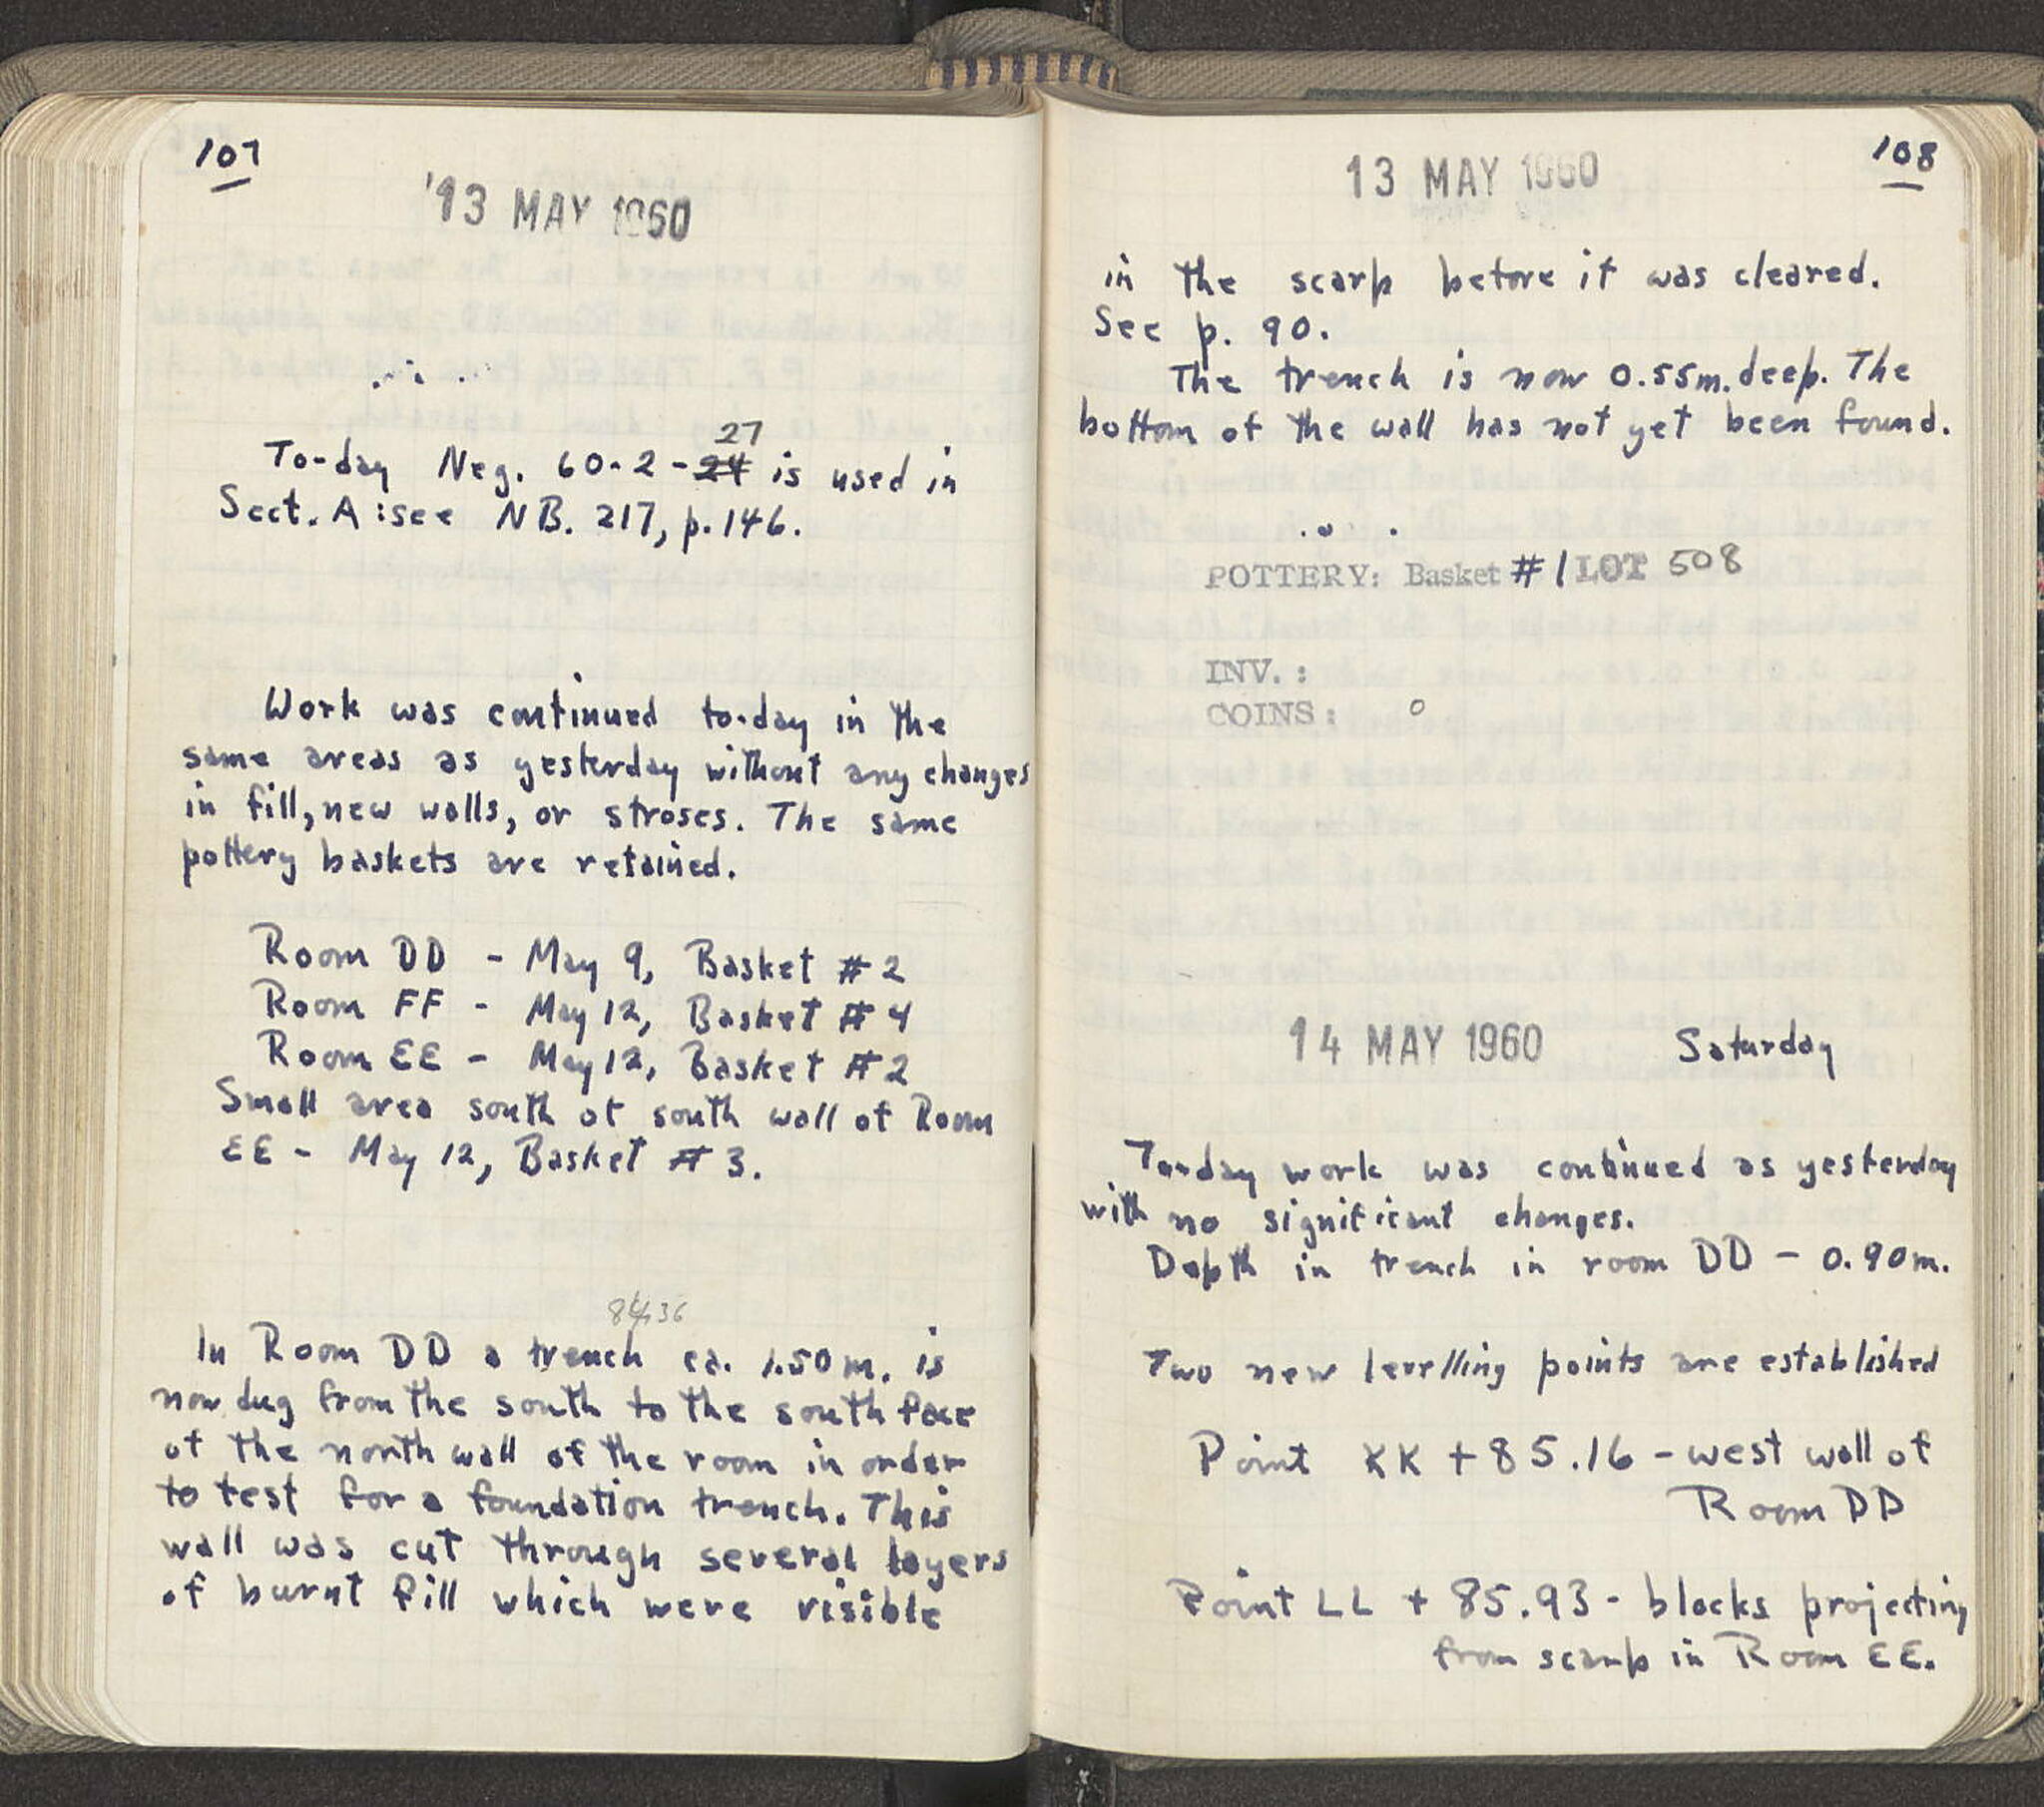 107
13 MAY 1960
27
To-day Neg. 60-2-24 is used in
Sect. A: see NB. 217, p. 146.
Work was continued to-day in the
same areas as yesterday without any changes
in fill, new walls, or stroses. The same
pottery baskets are retained.
Room DD - May 9, Basket #2
Room FF - May 12, Basket #4
Room EE - May 12, Basket #2
Small area south of south wall of Room
EE - May 12, Basket #3.
In Room DD a trench ca. 1.50 m. is
now dug from the south to the south face
of the north wall of the room in order
to test for a foundation trench. This
wall was cut through several layers
of burnt fill which were visible
108
13 MAY 1960
in the scarp before it was cleared.
See p. 90.
The trench is now 0.55m. deep. The
bottom of the wall has not yet been found.
POTTERY: Basket #1 LOT 508
INV.:
COINS: 0
14 MAY 1960 Saturday
To-day work was continued as yesterday
with no significant changes.
Depth in trench in room DD - 0.90m.
Two new levelling points are established
Point KK +85.16 - west wall of
Room DD
Point LL + 85.93 - blocks projecting
from scarp in Room EE.